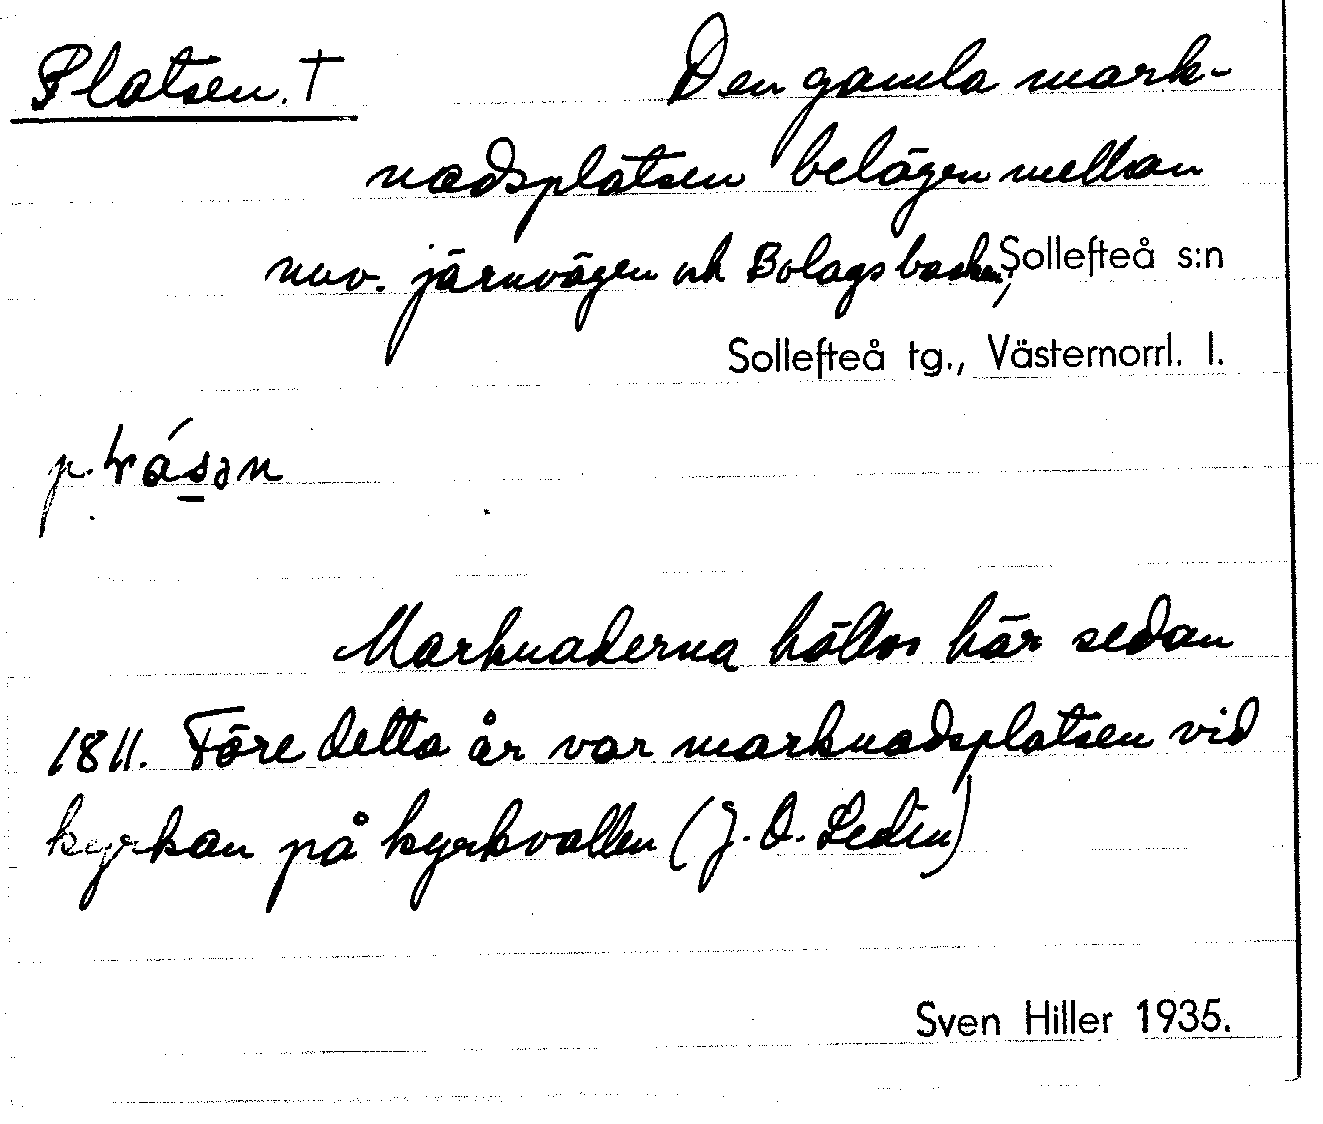 Platsen. † Den gamla mark-
nadsplatsen belägen mellan
nuv. järnvägen och Bolagsbacken,
Sollefteå s:n
Sollefteå tg., Västernorrl. l.
Marknaderna höllos här sedan
1811. Före detta år var marknadsplatsen vid
kyrkan på kyrkvallen (J. O. Ledin)
Sven Hiller 1935.